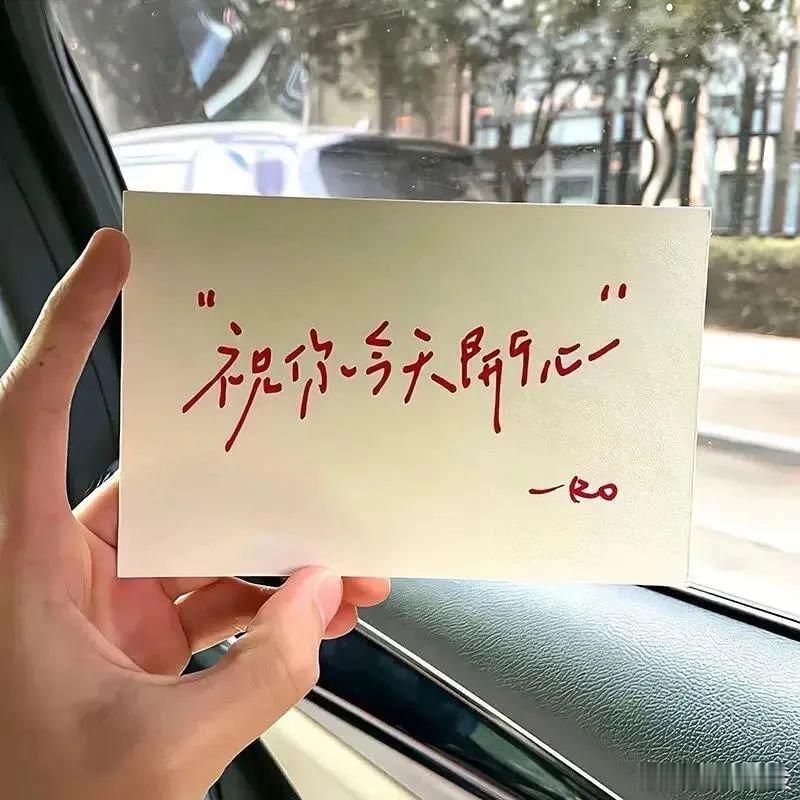 "祝你今天開心"
一RO